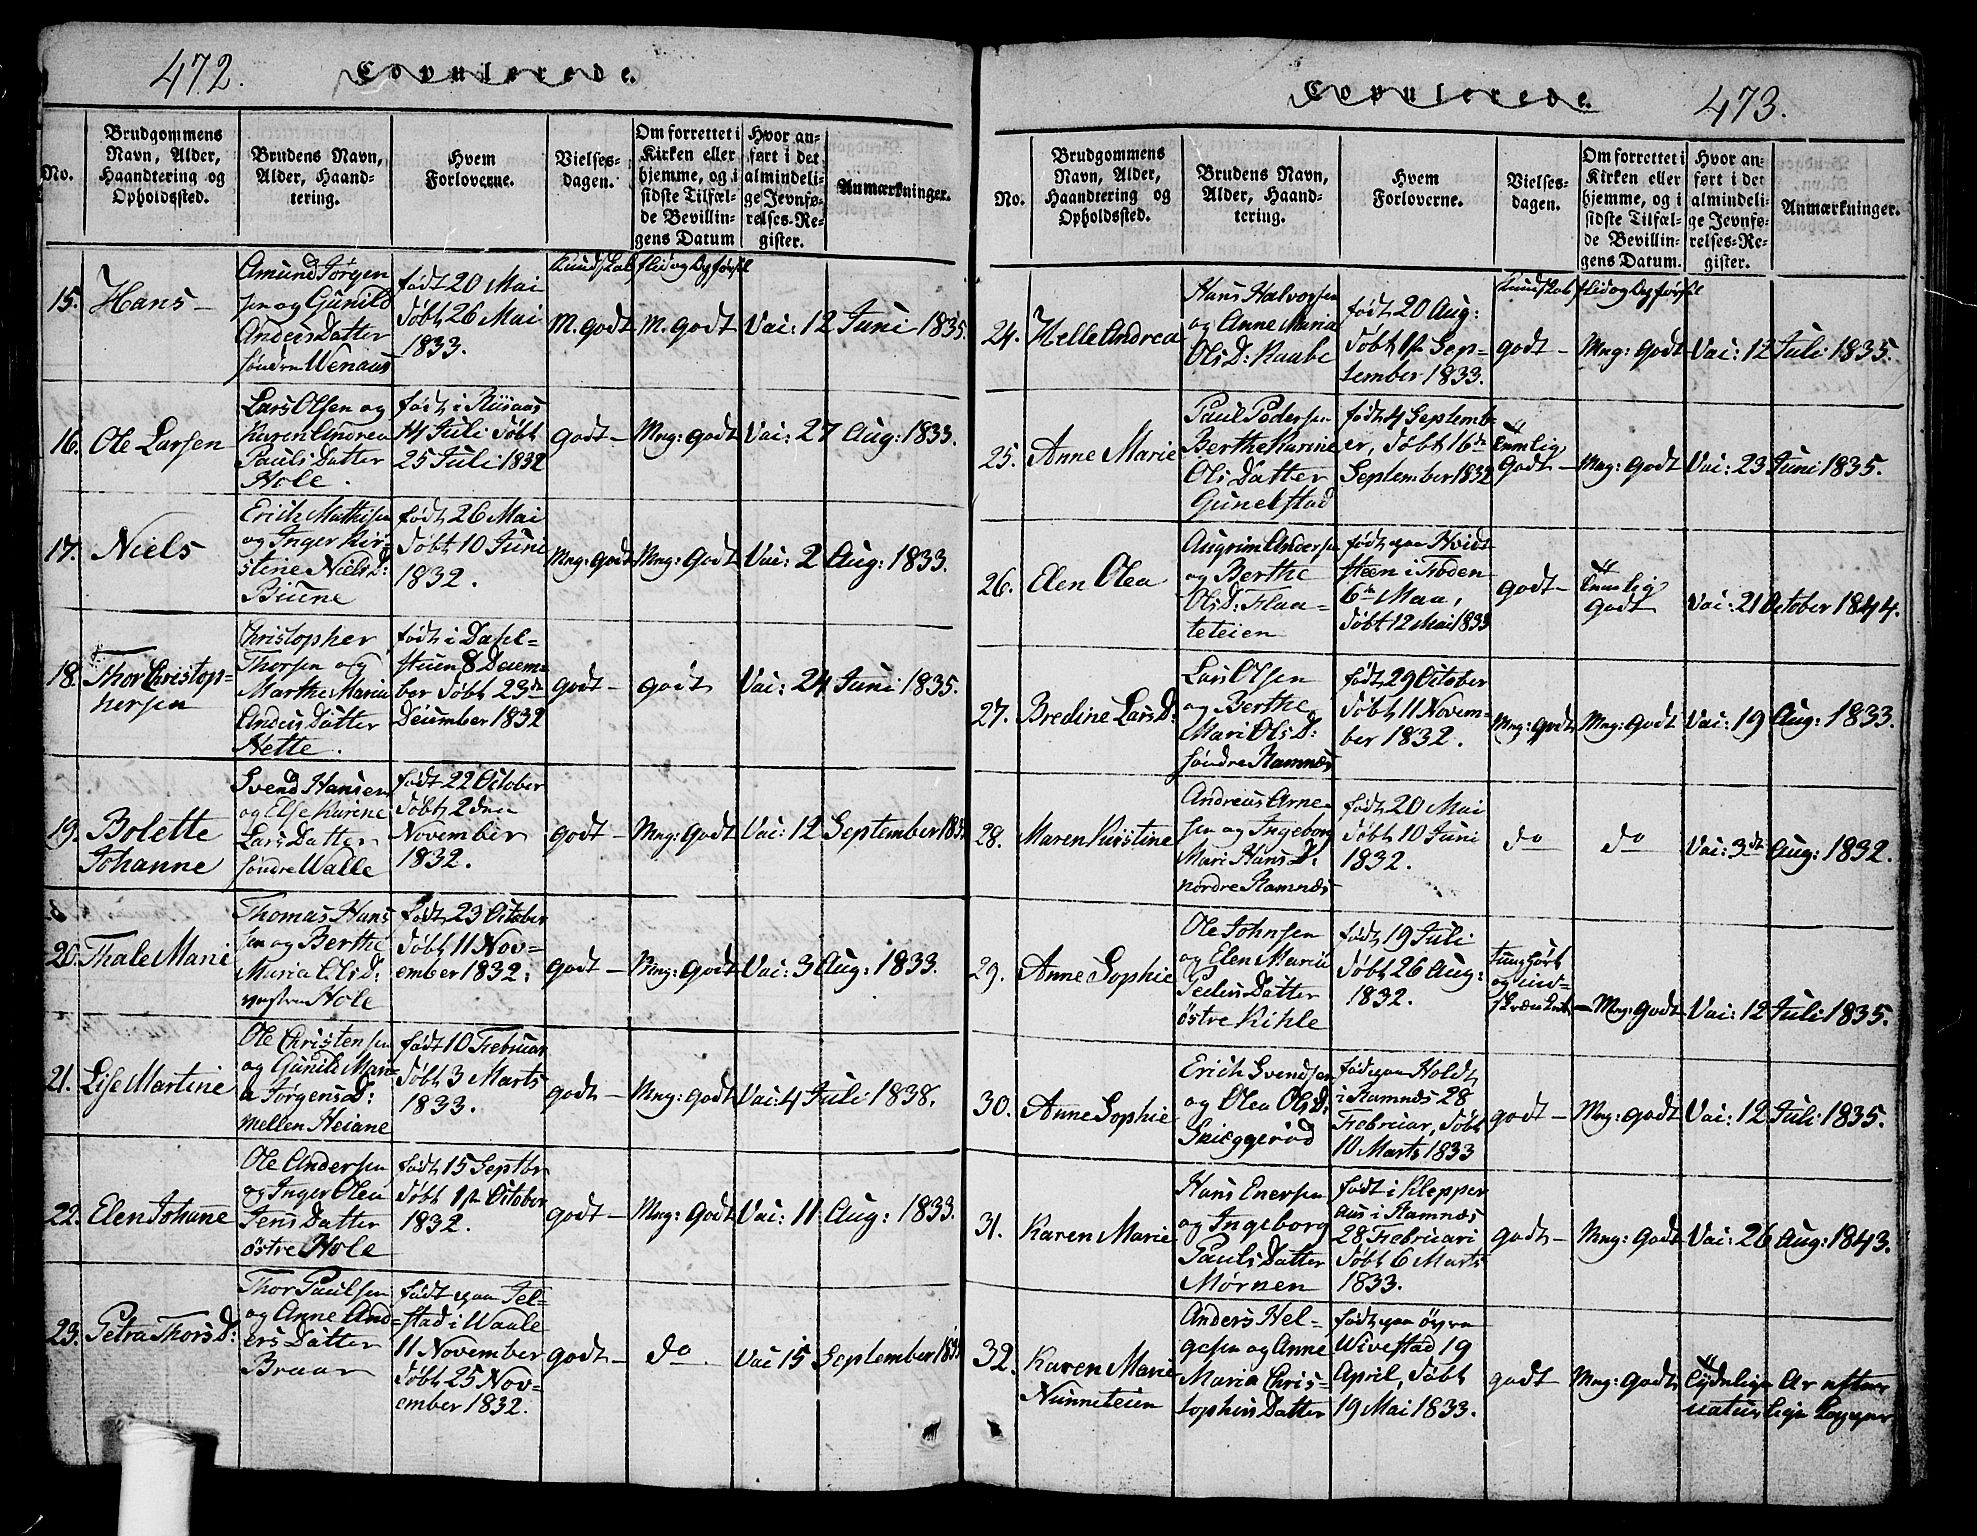 472.
Copulerede.
No.
Brudgommens
Navn, Alder,
Haandtering og
Opholdssted.
Brudens Navn,
Alder, Haand-
tering.
Hvem
Forloverne.
Vielses-
dagen.
Om forrettet i
Kirken eller
hjemme, og i
sidste Tilfæl-
de Bevillin-
gens Datum
Hvor an-
ført i det
almindeli-
ge Jevnfø-
relses-Re-
gister.
Anmærkninger.
Kundskab flid og Opførsel
15. Hans
Amund Jørgen
sen og Gunild
Anders Datter
søndre Wenaas
født 20 Mai
døbt 26 Mai
1833.
M. godt M. godt Vac: 12 Juni 1835.
16. Ole Larsen
Lars Olsen og
Karen Andrea
Pauls Datter
Hole.
født i
14 Juli døbt
25 Juli 1832
godt Mng: godt Vac: 27 Aug: 1833.
17. Niels
Erich Mathisen
og Inger Kir-
stine Niels D:
født 26 Mai
døbt 10 Juni
1832.
Mng: godt Mng: godt Vac: 2 Aug: 1833.
18. Thor Christop-
hersen
Christopher
Thorsen og
Marthe Maria
Anders Datter
født i
8 Decem-
ber døbt 23de
December 1832
godt godt Vac: 24 Juni 1835.
19. Bolette
Johanne
Svend Hansen
og Else Karine
Lars Datter
søndre Walle
født 22 October
døbt 2den
November
1832.
godt Mng: godt Vac: 12 September
20. Thale Marie
Thomas Hans
sen og Berthe
Maria Ols D:
Hole
født 23 October
døbt 11 Nov-
ember 1832.
godt Mng: godt Vac: 3 Aug: 1833.
21. Lise Martine
Ole Christensen
og Gunild Mari-
a Jørgens D:
mellen Heiane
født 10 Februar
døbt 3 Marts
1833.
godt Mng: godt Vac: 4 Juli 1838.
22. Elen Johane
Ole Andersen
og Inger Olea
Jens Datter
østre Hole
født 15 Septbr
døbt 1ste October
1832.
godt Mng: godt Vac: 11 Aug: 1833.
23. Petra Thors D:
Thor Paulsen
og Anne And-
ers Datter
Braar
født paa Jel-
stad i Waale
11 November
døbt 25 Nov-
ember 1832.
godt do. Vac 15 September
Copulerede.
473.
No.
Brudgommens
Navn, Alder,
Haandtering og
Opholdssted.
Brudens Navn,
Alder, Haand-
tering.
Hvem
Forloverne.
Vielses-
dagen.
Om forrettet i
Kirken eller
hjemme, og i
sidste Tilfæl-
de Bevillin-
gens Datum.
Hvor an-
ført i det
almindeli-
ge Jevnfø-
relses-Re-
gister.
Anmærkninger.
Kundskab flid og Opførsel
24. Helle Andrea
Hans Halvorsen
og Anne Maria
Ols D: Raabe
født 20 Aug:
døbt 1ste Sep-
tember 1833.
godt Mng: godt Vac: 12 Juli 1835.
25. Anne Marie
Paul Pedersen
Berthe Karine
Ols Datter
Gunelstad
født 4 Septemb-
er, døbt 16de
September 1832
temmelig
godt Mng: godt Vac: 23 Juni 1835.
26. Elen Olea
Andersen
og Berthe
Ols D: Flaa-
teteien
født paa Hvidt
steen i
6te Mai,
døbt 12 Mai 1833
godt temmelig
godt Vac: 21 October 1844.
27. Bredine Lars D:
Lars Olsen
og Berthe
Mari Ols D:
søndre Ramnæs
født 29 October
døbt 11 Novem-
ber 1832.
Mng: godt Mng: godt Vac: 19 Aug: 1833.
28. Maren Kirstine
Andreas Arne-
sen og Ingeborg
Mari Hans D:
nordre Ramnæs
født 20 Mai
døbt 10 Juni
1832.
do do Vac: 3de Aug: 1832.
29. Anne Sophie
Ole Johnsen
og Elen Maria
Peders Datter
østre Kihle
født 19 Juli
døbt 26 Aug:
1832.
tunghørt
og ind-
skrænket Mng: godt Vac: 12 Juli 1835.
30. Anne Sophie
Erich Svendsen
og Olea Ols D:
Skieggerød
født paa Holdt
i Ramnæs 28
Februar, døbt
10 Marts 1833
godt Mng: godt Vac: 12 Juli 1835.
31. Karen Marie
Hans Enersen
og Ingeborg
Pauls Datter
Mørnen
født i Klepper
aas i Ramnæs
28 Februari
døbt 6 Marts
1833.
godt Mng: godt Vac: 26 Aug: 1843.
32. Karen Marie
Nunneteien
Anders Hel-
gesen og Anne
Maria Chris-
tophers Datter
født paa øvre
Wivestad 19
April, døbt
19 Mai 1833.
godt Mng: godt tydelige Ar efter
naturlige Kopper